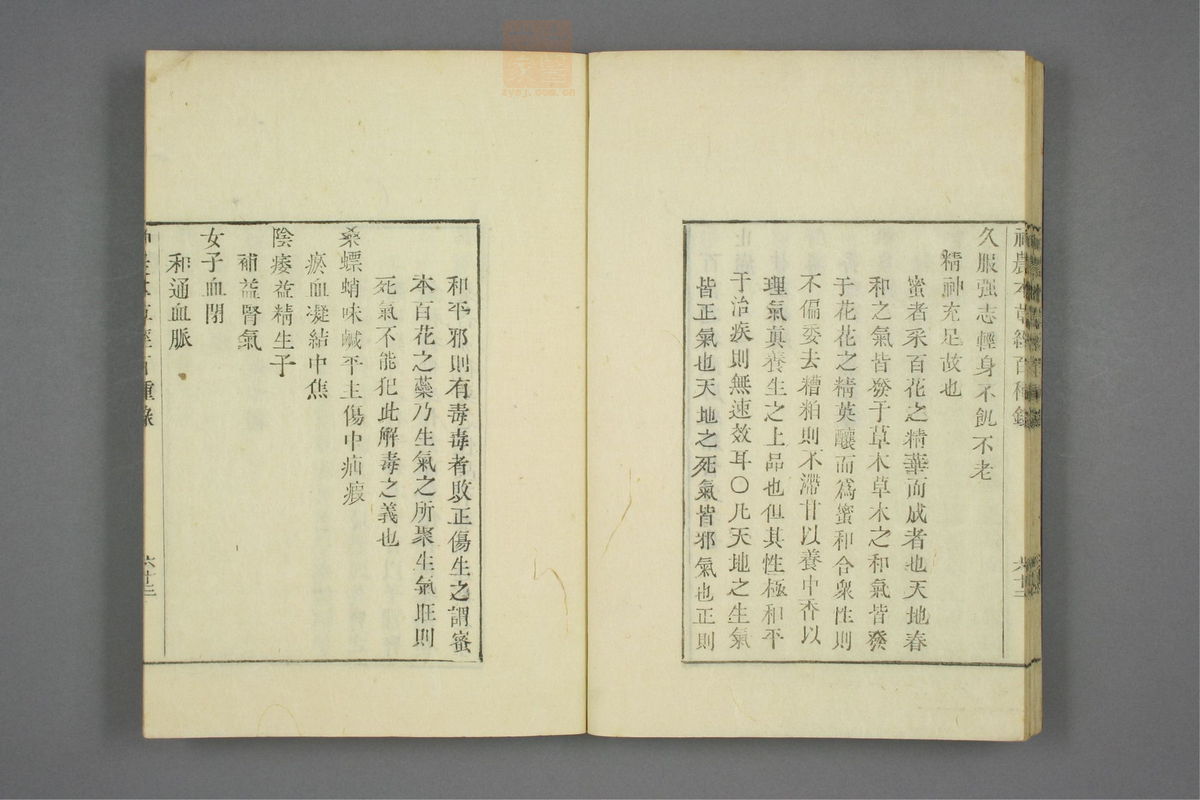 神農本草經百種錄
六十二
久服强志輕身不飢不老
精神充足故也
蜜者采百花之精華而成者也天地春
和之氣皆發于草木草木之和氣皆發
于花花之精英釀而爲蜜和合衆性則
不偏委去糟粕則不滯甘以養中香以
理氣真養生之上品也但其性極和平
于治疾則無速效耳〇凡天地之生氣
皆正氣也天地之死氣皆邪氣也正則
和平邪則有毒毒者敗正傷生之謂蜜
本百花之蘂乃生氣之所聚生氣旺則
死氣不能犯此解毒之義也
桑螵蛸味鹹平主傷中疝瘕
瘀血凝結中焦
陰痿益精生子
補益腎氣
女子血閉
和通血脈
種錄
六十三
zysj.com.cn